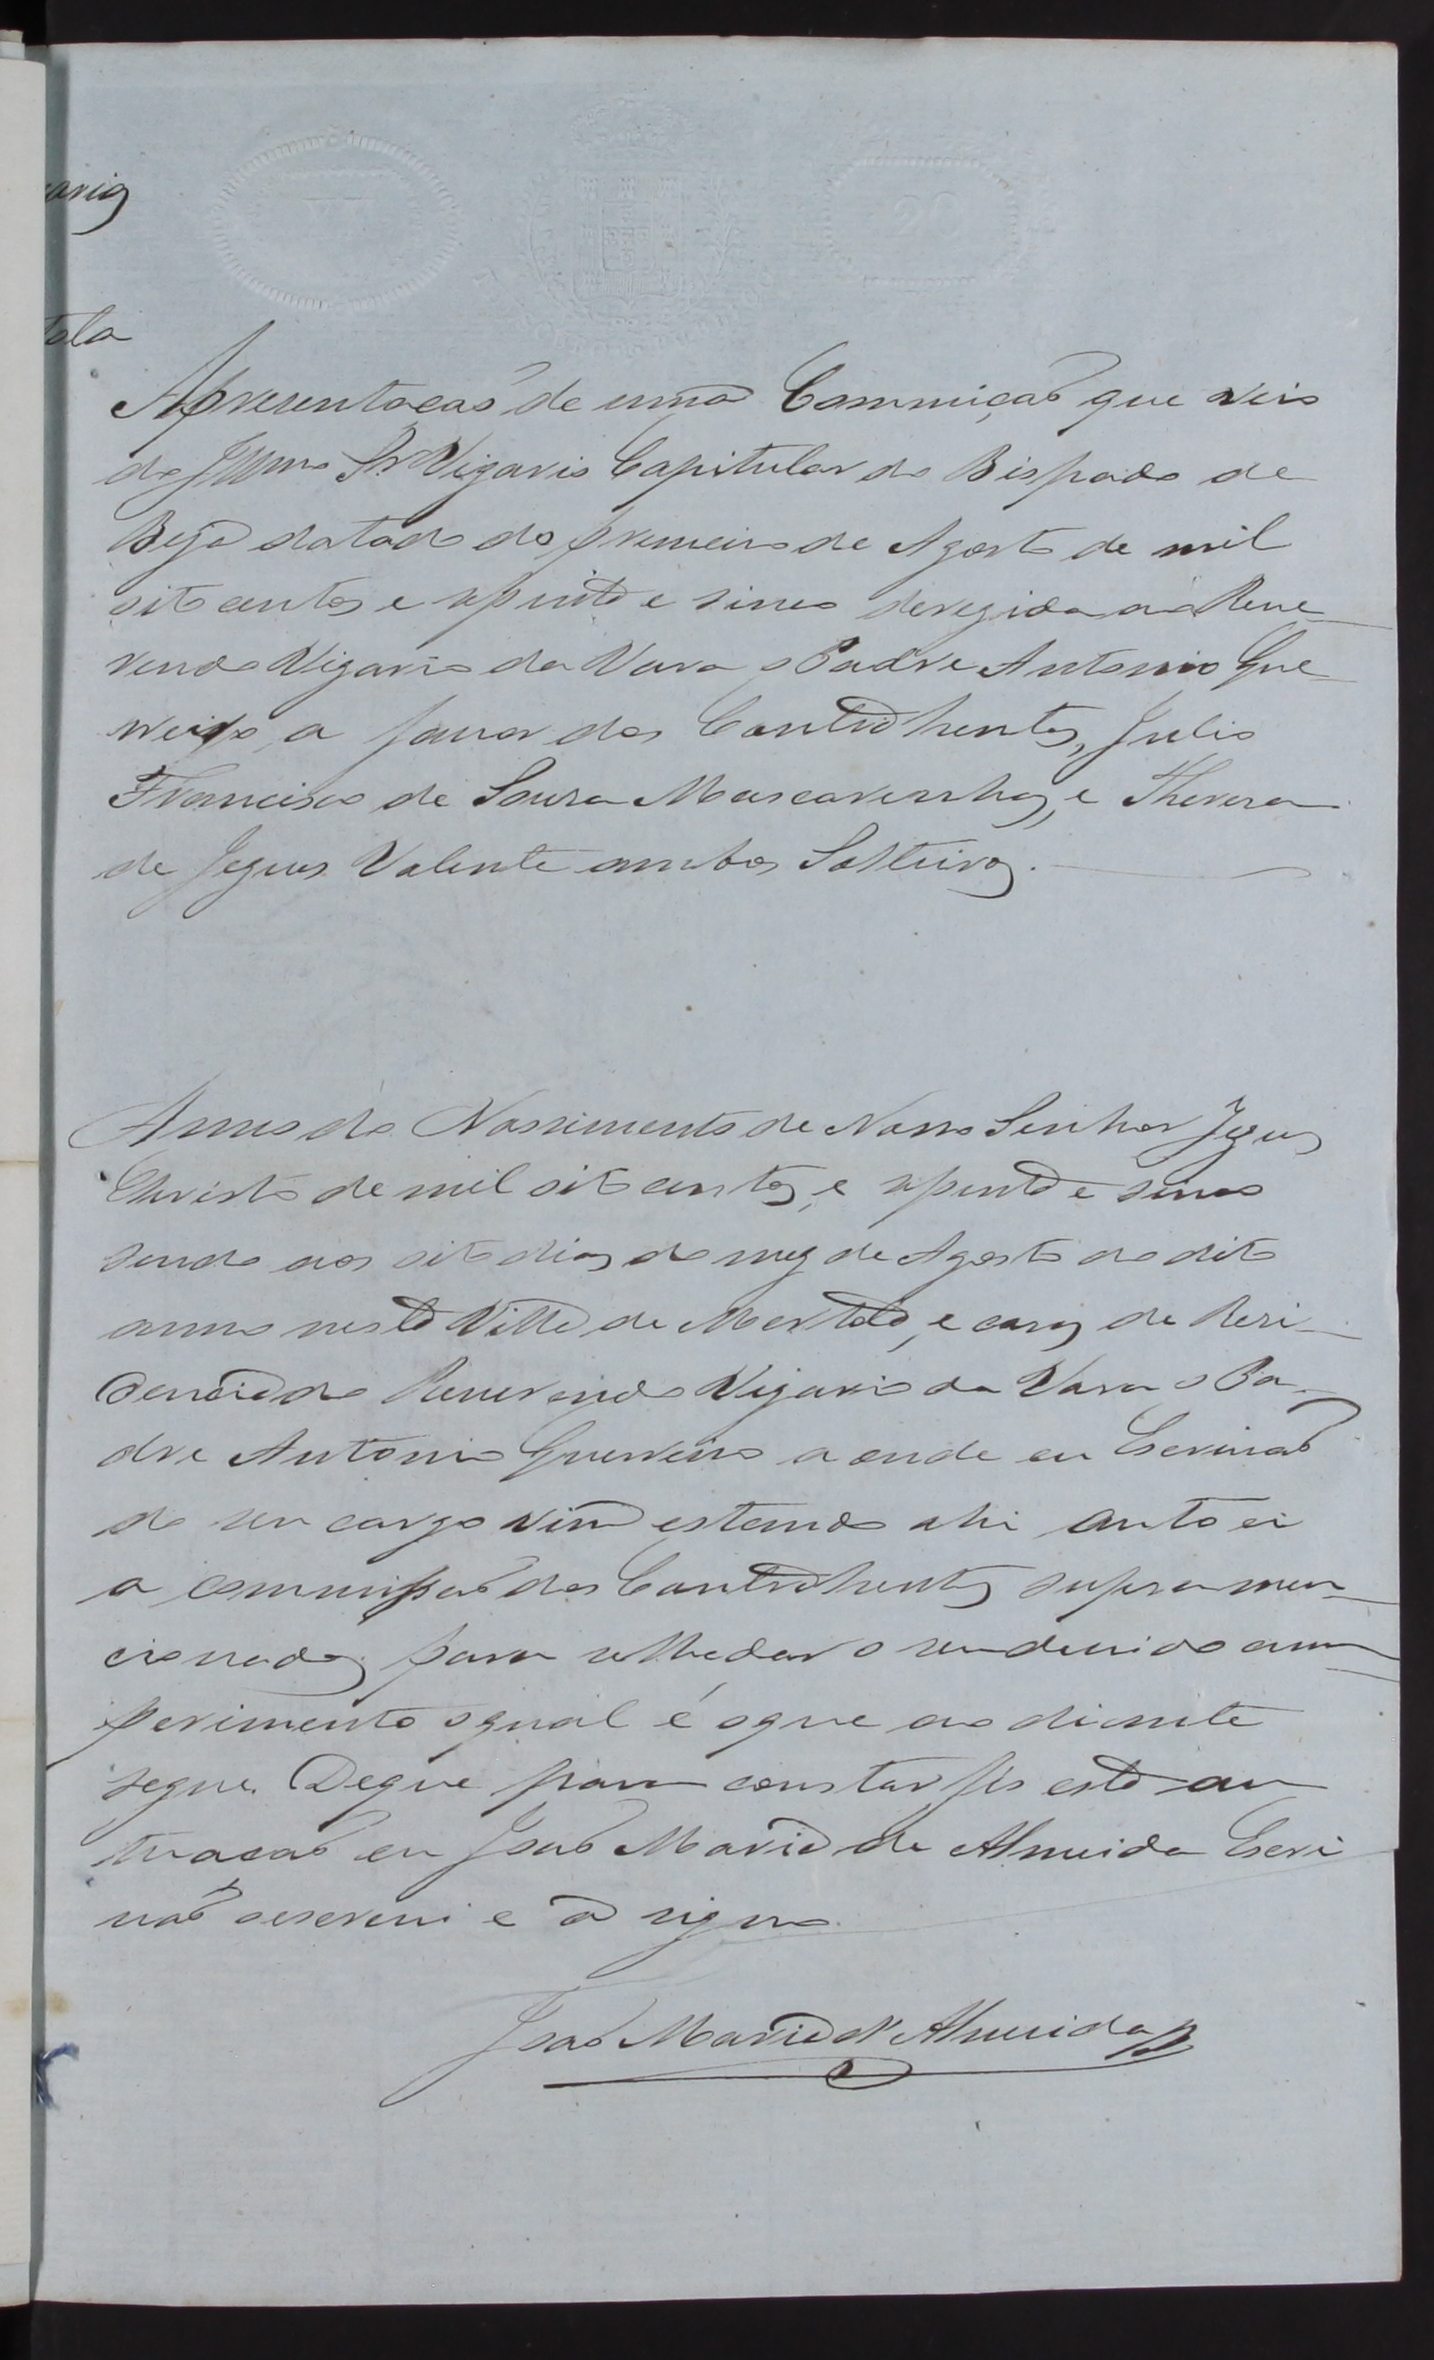 ario
tola
20
Apresentacaõ de uma Commiçaõ que veio
do Illmo Sr Vigario Capitular do Bispado de
Beja datada do premeiro de Agosto de mil
oito centos e setenta e sinco deregida ao Reve
rendo Vigario da Vara o Padre Antonio Gue
rreiro, a favor dos Contrahentes, Julio
Francisco de Souza Mascarenhas, e Thereza
de Jezus Valente ambos Solteiros.
Anno do Nassimento de Nosso Senhor Jezus
Christo de mil oito centos, e setenta e sinco
sendo aos oito dias do mez de Agosto do dito
anno nesta Villa de Mertola, e cazas de Rezi
dencia do Reverendo Vigario da Vara o Pa
dre Antonio Guerreiro aonde eu Escrivaõ
do seu cargo vim estando ahi autoei
a commissaõ dos Contrahentes supra men
cionados para selhedar o seu devido cum
perimento o qual é o que ao diante
segue. Deque para constar fis esta au
tuacaõ eu Joaõ Maria de Almeida Escri
vaõ oescrevi e a signo.
Joaõ Maria d'Almeida